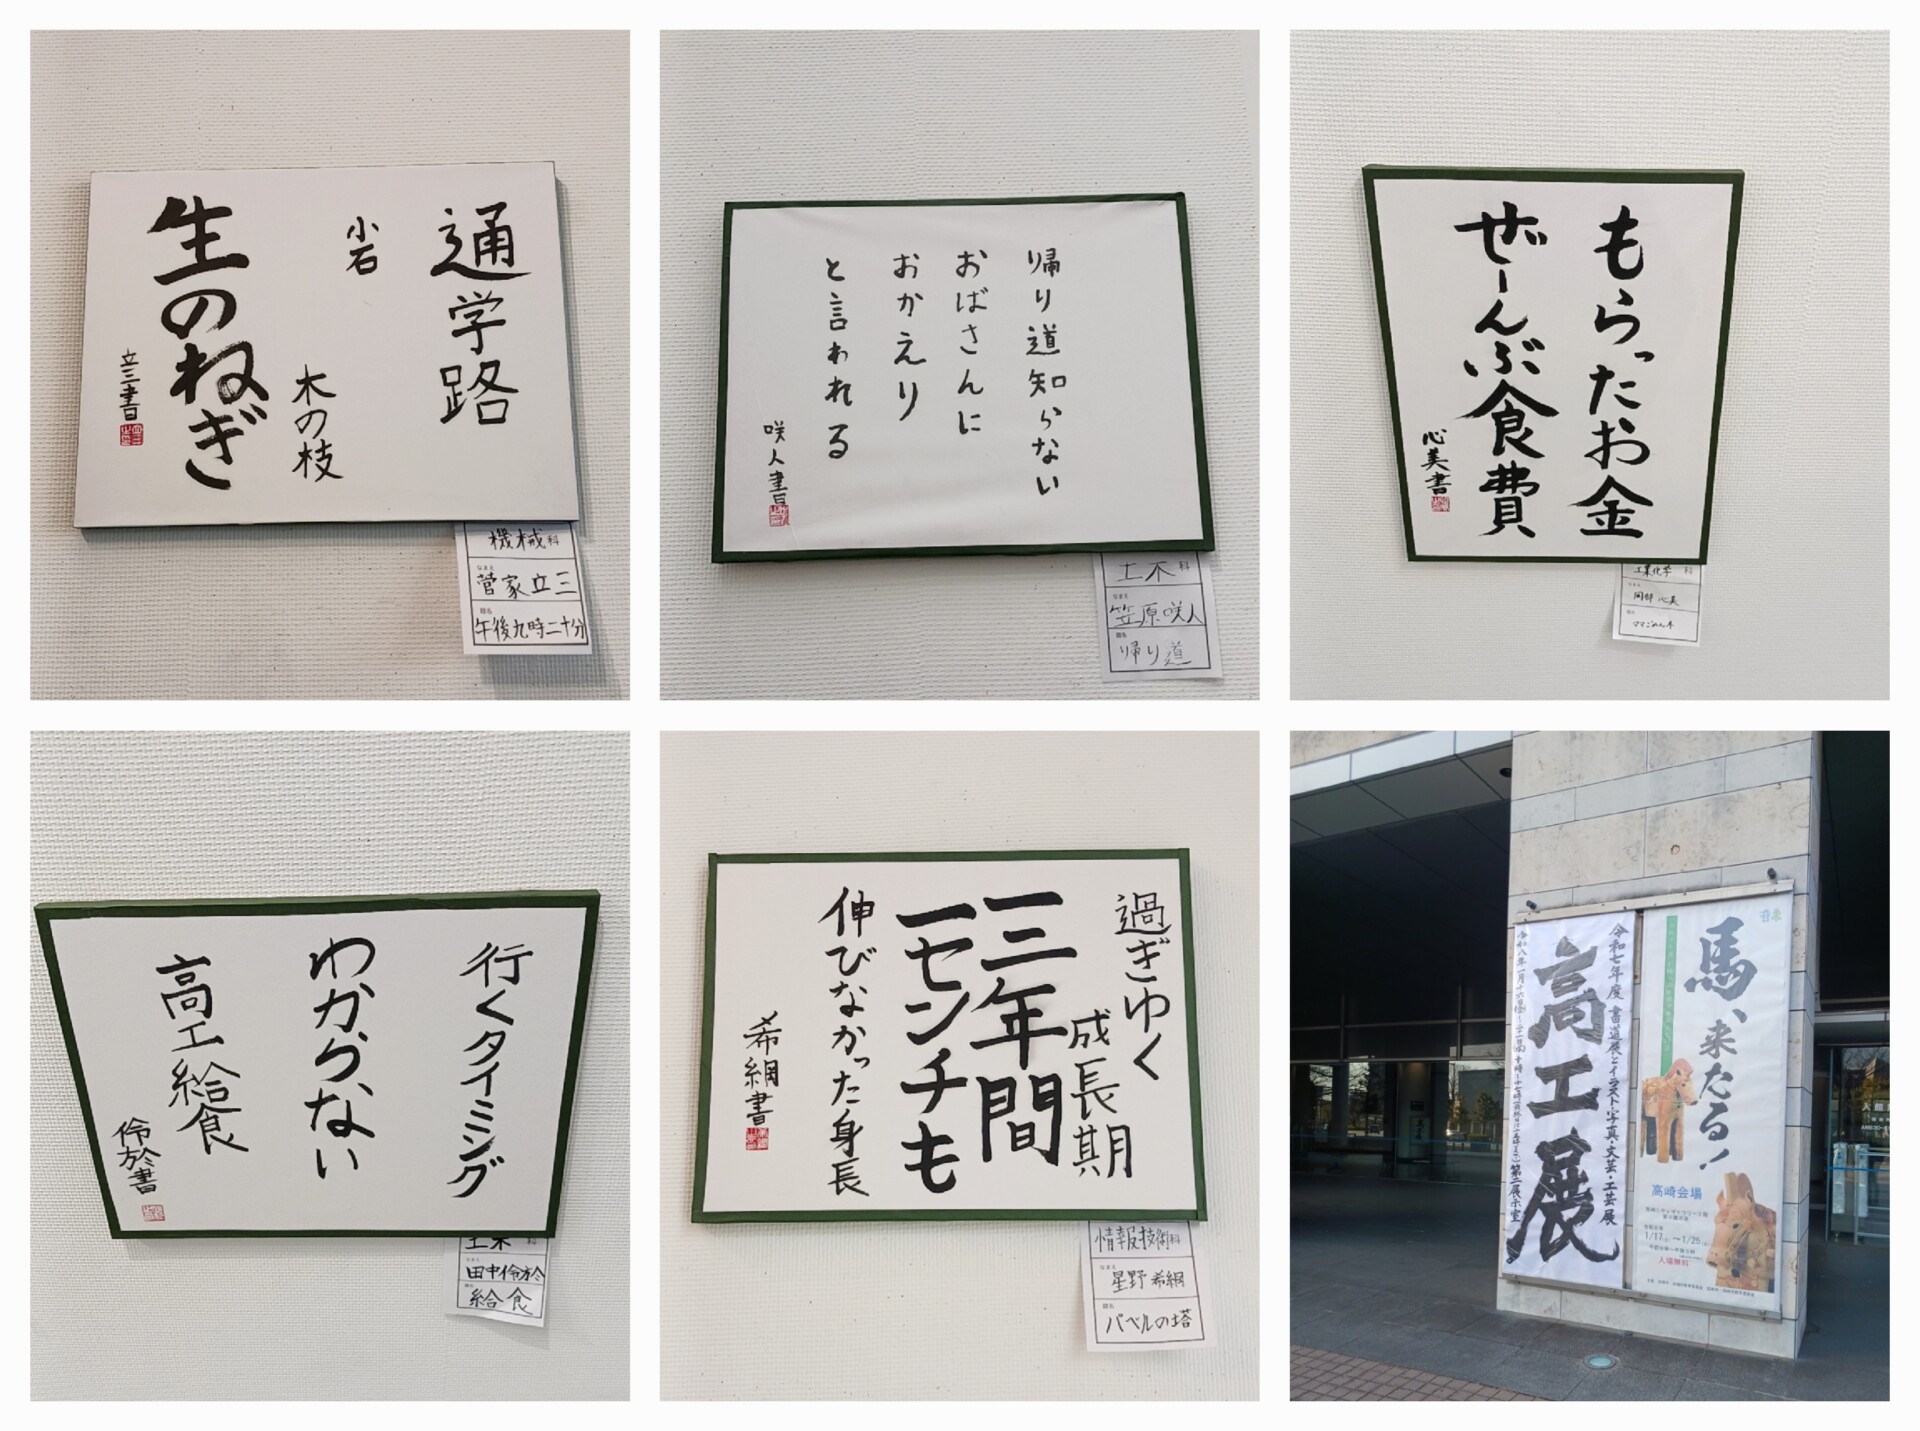 通学路
小石
木の枝
生のねぎ
立三書
機械科
なまえ
菅家立三
題名
午後九時二十分
帰り道知らない
おばさんに
おかえり
と言われる
咲人書
土木科
なまえ
笠原咲人
題名
帰り道
もらったお金
ぜーんぶ食費
心美書
工業化学 科
岡部 心美
ママごめん本
行くタイミング
わからない
高工給食
伶於書
土木 科
田中伶於
給食
過ぎゆく
成長期
三年間
一センチも
伸びなかった身長
希綱書
情報技術科
なまえ
星野希綱
題名
バベルの塔
令和七年度 書道展とイラスト・写真・文芸・工芸展
高工展
第二展示室
馬、来たる！
高崎会場
1/17 〜1/25
入場無料